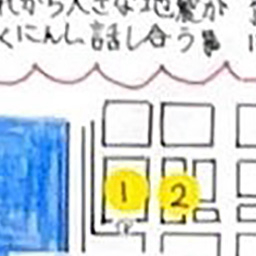 から大きな地震が
くにんし、話し合う
1 2